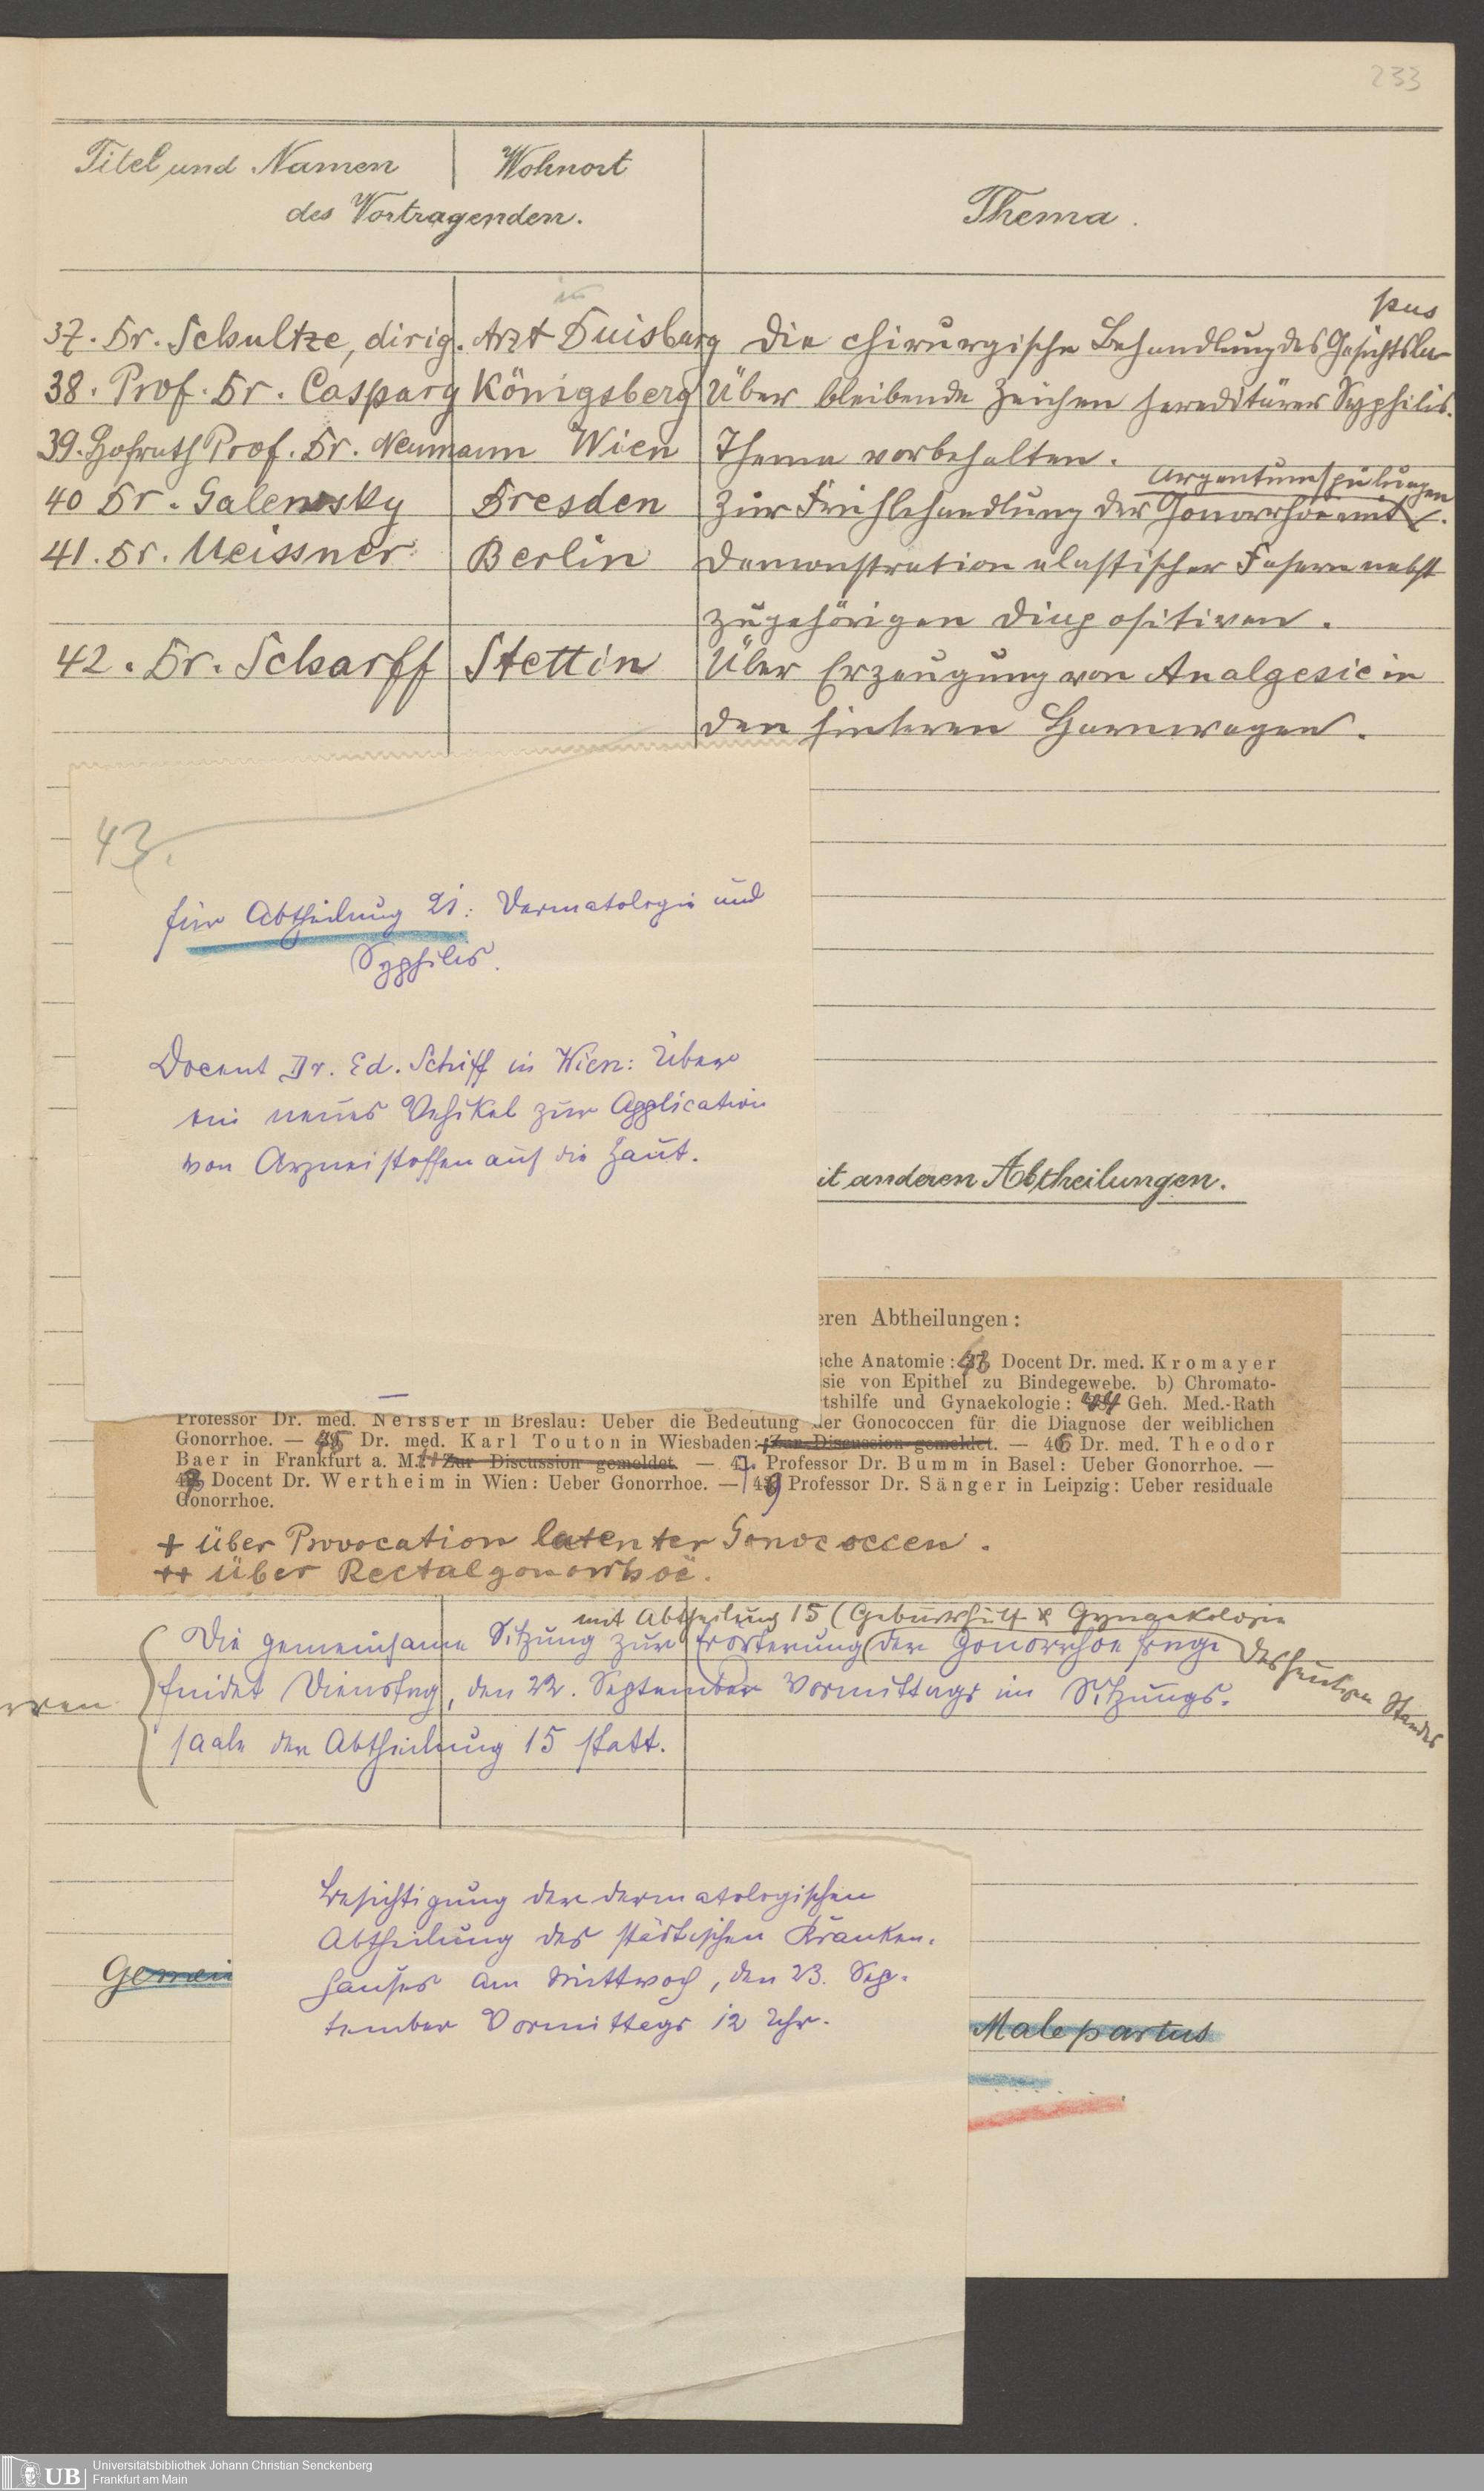 233
Titel und Namen
Wohnort
des Vortragenden.
Thema.
37. Dr. Schultze, dirig. Arzt Duisburg Die chirurgische Behandlung des Gesichtslu-
pus
38. Prof. Dr. Caspary Königsberg Über bleibende Zeichen hereditärer Syphilis.
39. Hofrath Prof. Dr. Neumann Wien Thema vorbehalten.
Argentumspülungen
40 Dr. Galewsky Dresden Zur Frühbehandlung der Gonorrhoe mit
41. Dr. Meissner Berlin Demonstration elastischer Fasern nebst
zugehörigen Diapositiven.
42. Dr. Scharff Stettin Über Erzeugung von Analgesie in
den hinteren Harnwegen.
43.
für Abtheilung 21: Dermatologie und
Syphilis.
Docent Dr. Ed. Schiff in Wien: Über
ein neues Vehikel zur Application
von Arzneistoffen auf die Haut.
it anderen Abtheilungen.
eren Abtheilungen:
sche Anatomie: Docent Dr. med. Kromayer
sie von Epithel zu Bindegewebe. b) Chromato-
tshilfe und Gynaekologie: Geh. Med.-Rath
Professor Dr. med. Neisser in Breslau: Ueber die Bedeutung der Gonococcen für die Diagnose der weiblichen
Gonorrhoe. — 45 Dr. med. Karl Touton in Wiesbaden: + Zur Discussion gemeldet. — 46 Dr. med. Theodor
Baer in Frankfurt a. M.: ++ Zur Discussion gemeldet. — 47. Professor Dr. Bumm in Basel: Ueber Gonorrhoe. —
48 Docent Dr. Wertheim in Wien: Ueber Gonorrhoe. — 49 Professor Dr. Sänger in Leipzig: Ueber residuale
Gonorrhoe.
+ Über Provocation latenter Gonococcen.
++ Über Rectalgonorrhoë.
mit Abtheilung 15 (Geburtshülf & Gynaekologie
Die gemeinsame Sitzung zur Erörterung der Gonorrhoe frage
des heutigen Standes
findet Dienstag, den 22. September Vormittags im Sitzungs-
saale der Abtheilung 15 statt.
Besichtigung der dermatologischen
Abtheilung des städtischen Kranken-
hauses am Mittwoch, den 23. Sep-
tember Vormittags 12 Uhr.
Gemein
Malepartus
UB
Universitätsbibliothek Johann Christian Senckenberg
Frankfurt am Main